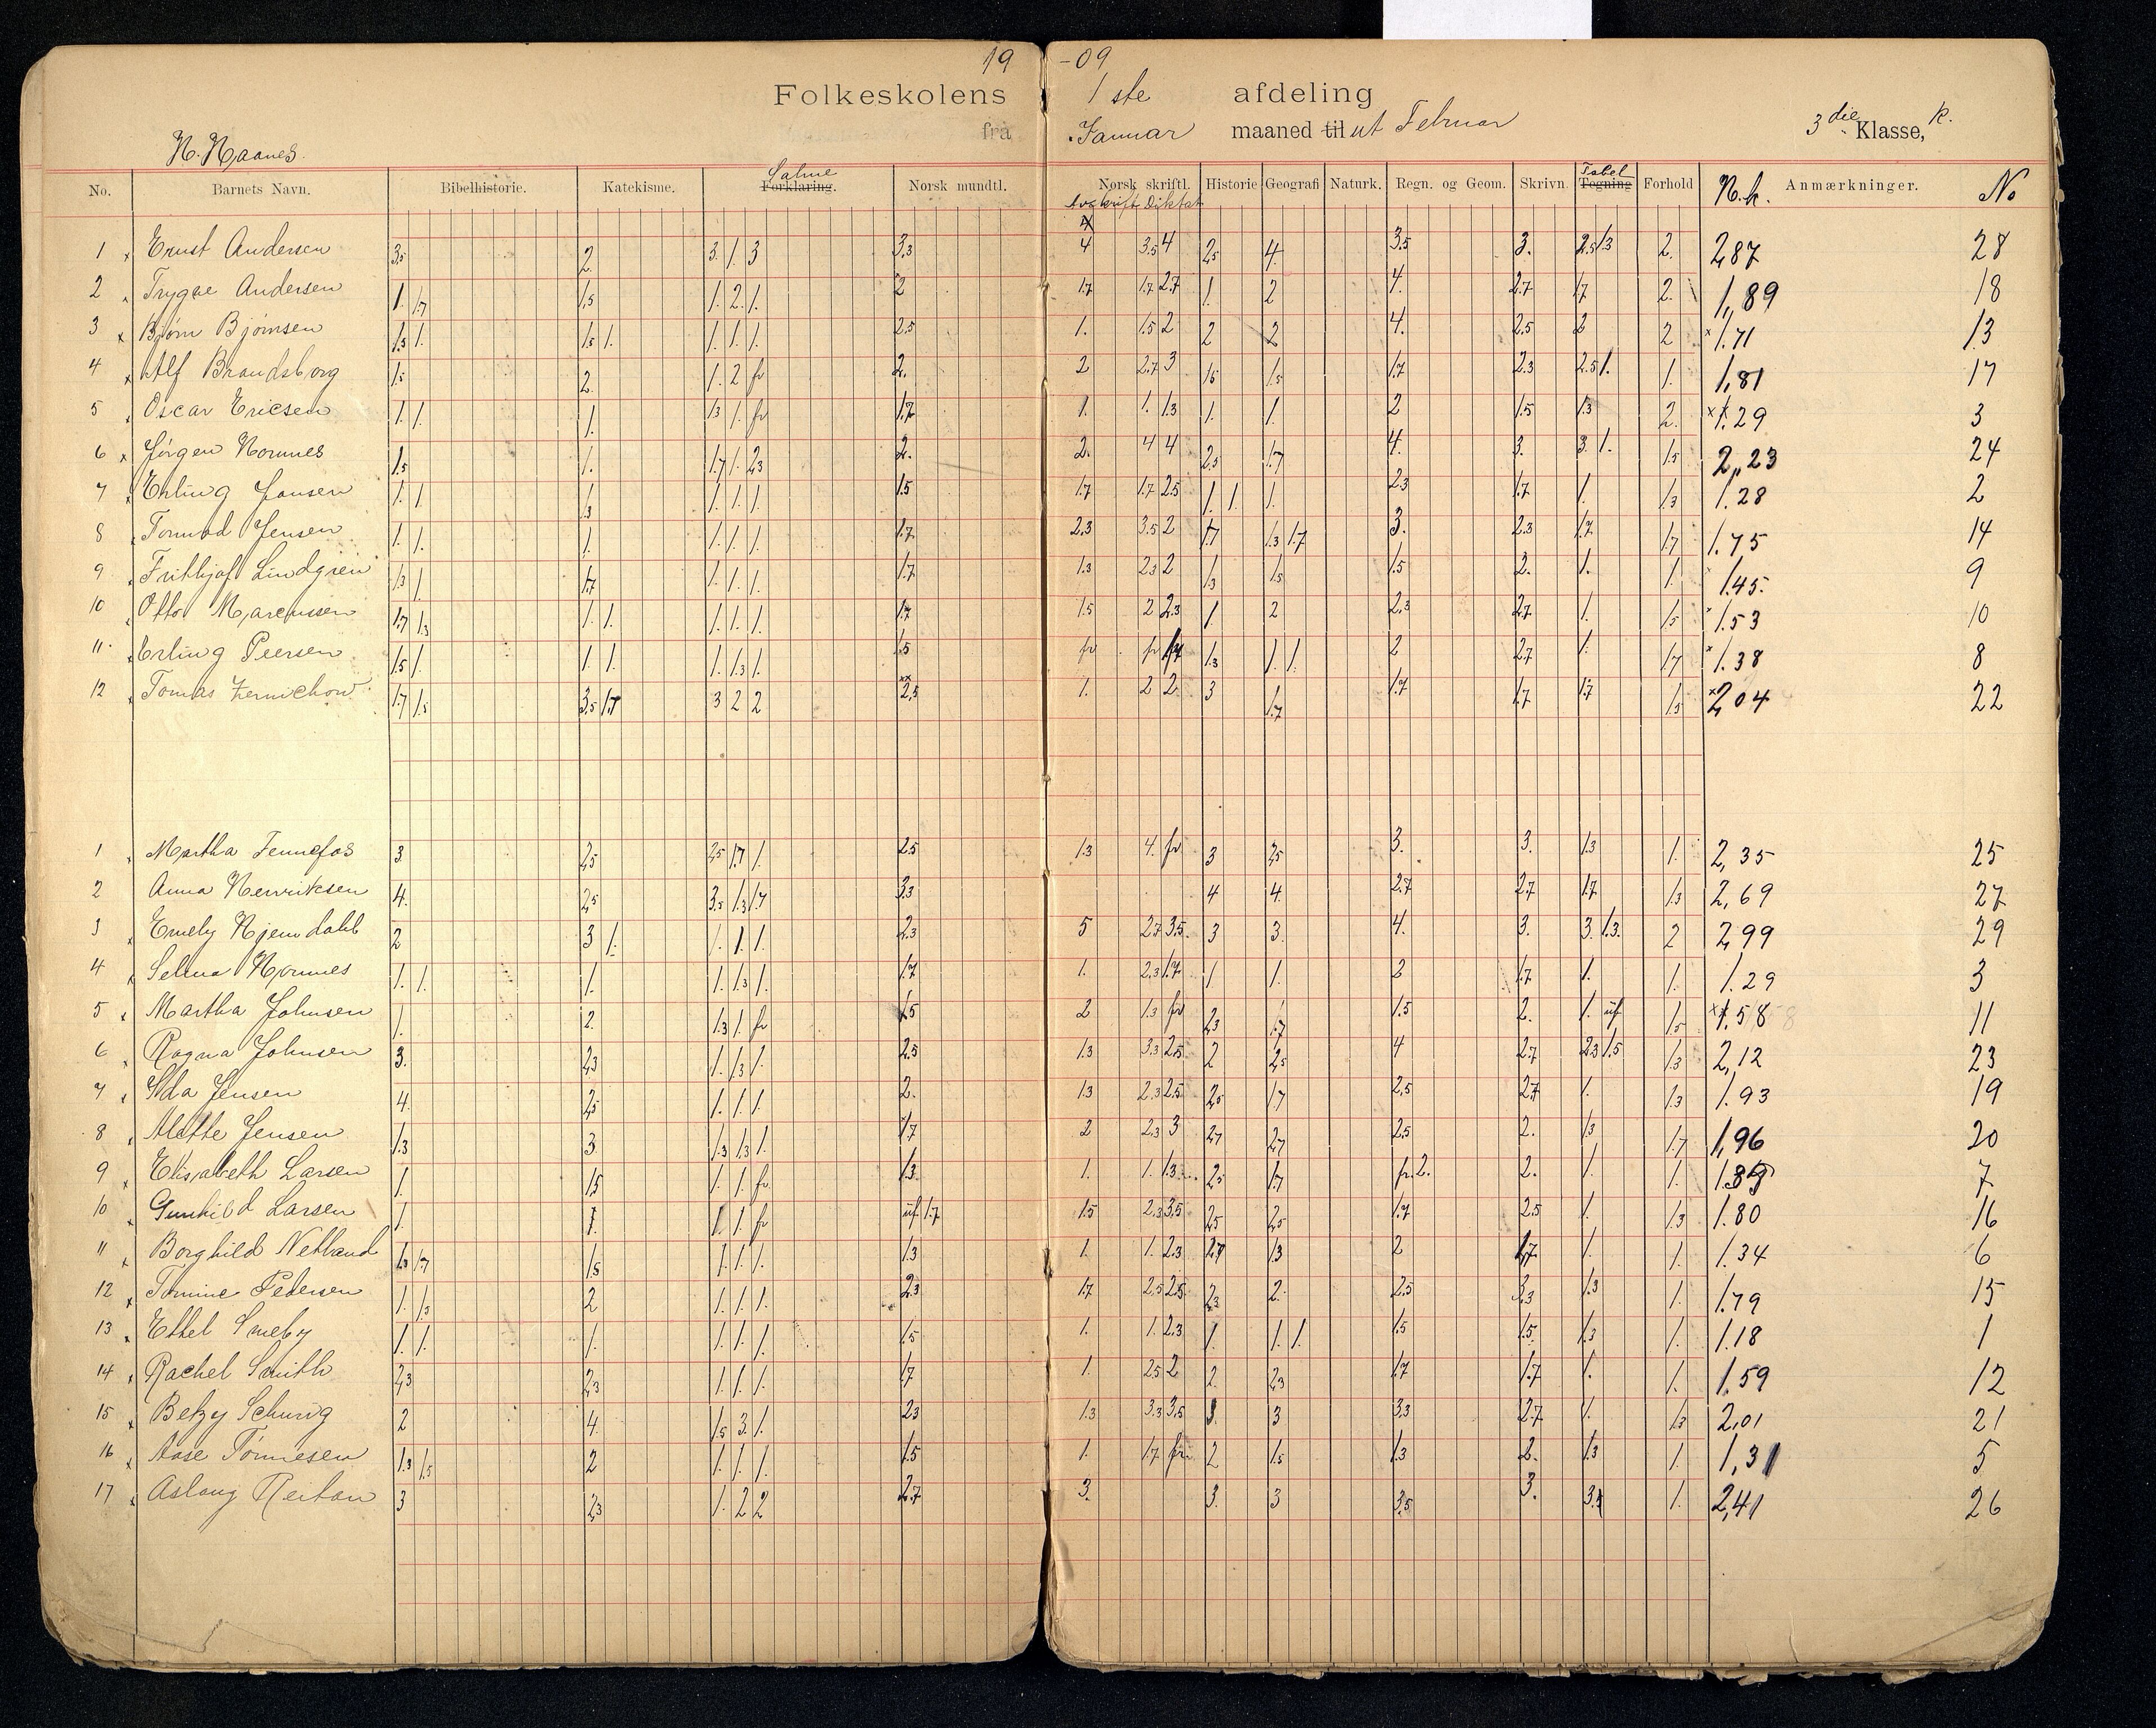 19 -09
Folkeskolens 1ste afdeling
fra Januar maaned til ut Februar 3die Klasse, k.
N. Naanes.
No. Barnets Navn. Bibelhistorie. Katekisme. Salme Forklaring. Norsk mundtl. Norsk skriftl. Historie Geografi Naturk. Regn. og Geom. Skrivn. Tabel Tegning Forhold N.k. Anmærkninger. No
Avskrift Diktat
1 Ernst Andersen 3,5 2 3. 1. 3 3,3 4 3,5 4 2,5 4. 3,5 3. 2,5 1.3 2. 2,87 28
2 Trygve Andersen 1. 1.7 1.5 1. 2. 1. 2 1.7 1.7 2.7 1. 2 4. 2.7 1.7 2. 1,89 18
3 Bjørn Bjørnsen 1.3 1. 1.5 1. 1. 1. 1. 2.5 1. 1.5 2 2 2 4. 2.5 2 2 1.71 13
4 Alf Brandsborg 1.5 2. 1. 2 fr 2. 2 2.7 3 1.5 1.5 1.7 2.3 2.5 1. 1. 1,81 17
5 Oscar Ericsen 1. 1. 1. 1.3 1. fr 1.7 1. 1. 1.3 1. 1. 2 1.5 1.3 2. 1.29 3
6 Jørgen Homnes 1.5 1. 1.7 1. 2,3 2. 2. 4 4 2,5 1.7 4. 3. 3. 1. 1.5 2,23 24
7 Erling Jansen 1. 1. 1.3 1. 1. 1. 1.5 1.7 1.7 2.5 1. 1. 1. 2.3 1.7 1. 1.3 1.28 2
8 Tormod Jensen 1. 1. 1. 1. 1. 1. 1.7 2,3 3.5 2 1.7 1.3 1.7 3. 2.3 1.7 1.7 1.75 14
9 Frithjof Lindgren 1.3 1. 1.7 1. 1. 1. 1.7 1.3 2.3 2 1.3 1.5 1.5 2. 1. 1. 1.45. 9
10 Otto Marcussen 1.7 1.3 1. 1. 1. 1. 1. 1.7 1.5 2 2.3 1 2 2,3 2.7 1. 1.5 1.53 10
11 Erling Peersen 1.5 1. 1. 1. 1. 1.3 1. 1.5 fr fr 1.7 1.3 1. 1. 2 2.7 1. 1.7 1.38 8
12 Tomas Zernichow 1.7 1.5 3,5 1.7 3 2 2 2,5 1. 2 2 3 1.7 1.7 1.7 1.7 1.5 2,04 22
1 Martha Fennefos 3 2,5 2,5 1.7 1. 2.5 1.3 4. fr 3 2,5 3. 3. 1.3 1. 2,35 25
2 Anna Henriksen 4. 2,5 3.5 1.3 1.7 3.3 4 4. 2.7 2.7 1.7 1.3 2,69 27
3 Emely Hjemdahl 2 3 1. 1. 1. 1. 2.3 5 2.7 3.5. 3 3. 4. 3. 3. 1.3. 2 2,99 29
4 Selma Homnes 1. 1. 1. 1. 1.3 1. 1.7 1. 2.3 1.7 1 1. 2 1.7 1. 1. 1.29 3
5 Martha Johnsen 1. 2. 1.3 1. fr 1.5 2 1.3 fr 2,3 1.7 1.5 2. 1. uf 1.5 1.58 11
6 Ragna Johnsen 3. 2,3 1. 1.3 1. 2.5 1.3 3.3 2.5 2 2,5 4 2.7 2.3 1.5 1.3 2,12 23
7 Ada Jensen 4. 2,5 1. 1. 1. 2. 1.3 2.3 2.5 2,5 1.7 2,5 2.7 1. 1.3 1.93 19
8 Alette Jensen 1.3 3 1.3 1.3 1. 1.7 2 2.3 3 2,7 2,7 2,5 2. 1.3 1.7 1,96 20
9 Elisabeth Larsen 1. 1.5 1. 1. fr 1.3 1. 1. 1.3 2,5 1.7 fr. 2. 2. 1. 1. 7
10 Gunhild Larsen 1. 1. 1. 1. fr uf 1.7 1.5 2.3 3.5 2,5 2,5 1.7 2.5 1. 1.3 1.80 16
11 Borghild Netland 1.3 1.7 1.5 1. 1. 1. 1.3 1. 1. 2.3 2.7 1.3 2 1.7 1. 1. 1.34 6
12 Tomine Pedersen 1. 1.3 2 1. 1. 1. 2.3 1.7 2.5 2.5 2.3 2. 2.5 3,3 1.3 1. 1.79 15
13 Ethel Smeby 1. 1. 1. 1. 1. 1. 1.5 1. 1. 2.3 1. 1. 1. 1.5 1.5. 1.3 1. 1.18 1
14 Rachel Smith 2,3 2,3 1. 1. 1. 1.7 1. 2.5 2 2. 2,3 1.7 1.7 1. 1. 1.59 12
15 Betzy Schurig 2 4. 1.5 3. 1. 2.3 1.3 3.3 3,5 3. 3 3,3 2.7 1. 1.3 2,01 21
16 Aase Tønnesen 1.3 1.5 2 1. 1. 1. 1.5 1. 1.7 fr. 2 1.5 1.3 2. 1.3 1. 1,31 5
17 Aslaug Reitan 3 2,3 1. 2 2 2.7 3. 3. 3 3,5 3. 3. 1. 2,41 26